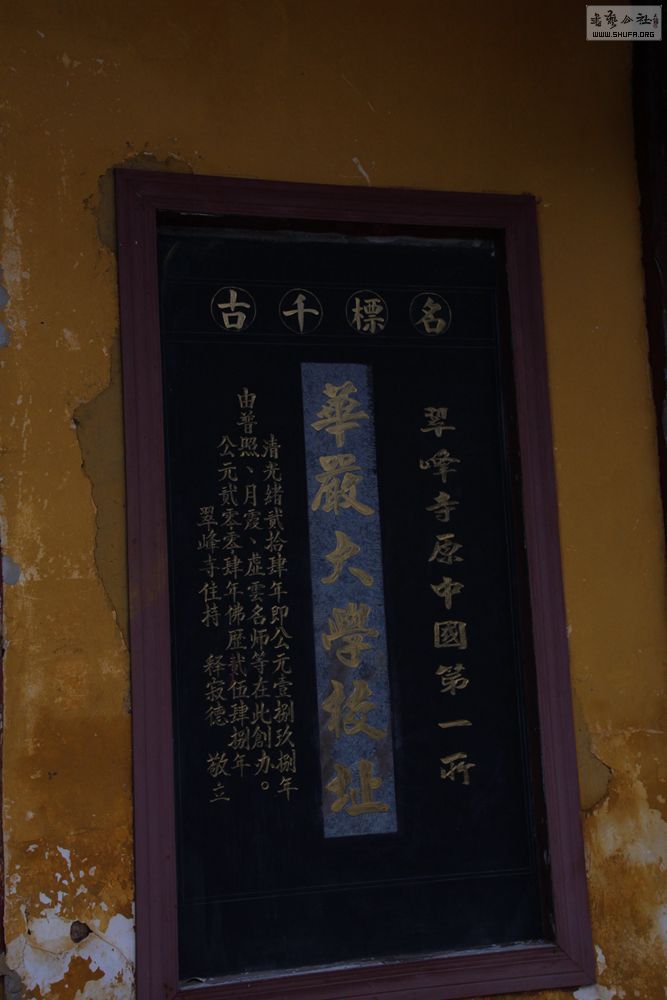 名標千古
翠峰寺原中國第一所
華嚴大學校址
清光緒貳拾肆年即公元壹捌玖捌年
由普照、月霞、虛雲名师等在此創办。
公元貳零零肆年佛歷貳伍肆捌年
翠峰寺住持 释寂德 敬立
書藝公社
WWW.SHUFA.ORG